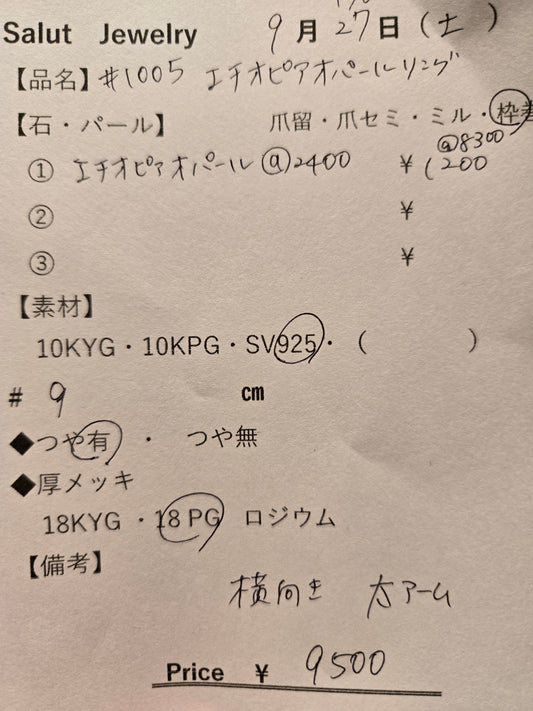 Salut Jewelry 9月27日(土)
【品名】#1005 エチオピアオパールリング
【石・パール】 爪留・爪セミ・ミル・枠
@8300
① エチオピアオパール @2400 ¥ 1200
② ¥
③ ¥
【素材】
10KYG・10KPG・SV925・( )
# 9 cm
◆つや有 ・ つや無
◆厚メッキ
18KYG ・18 PG ロジウム
【備考】
横向き 太アーム
Price ¥ 9500